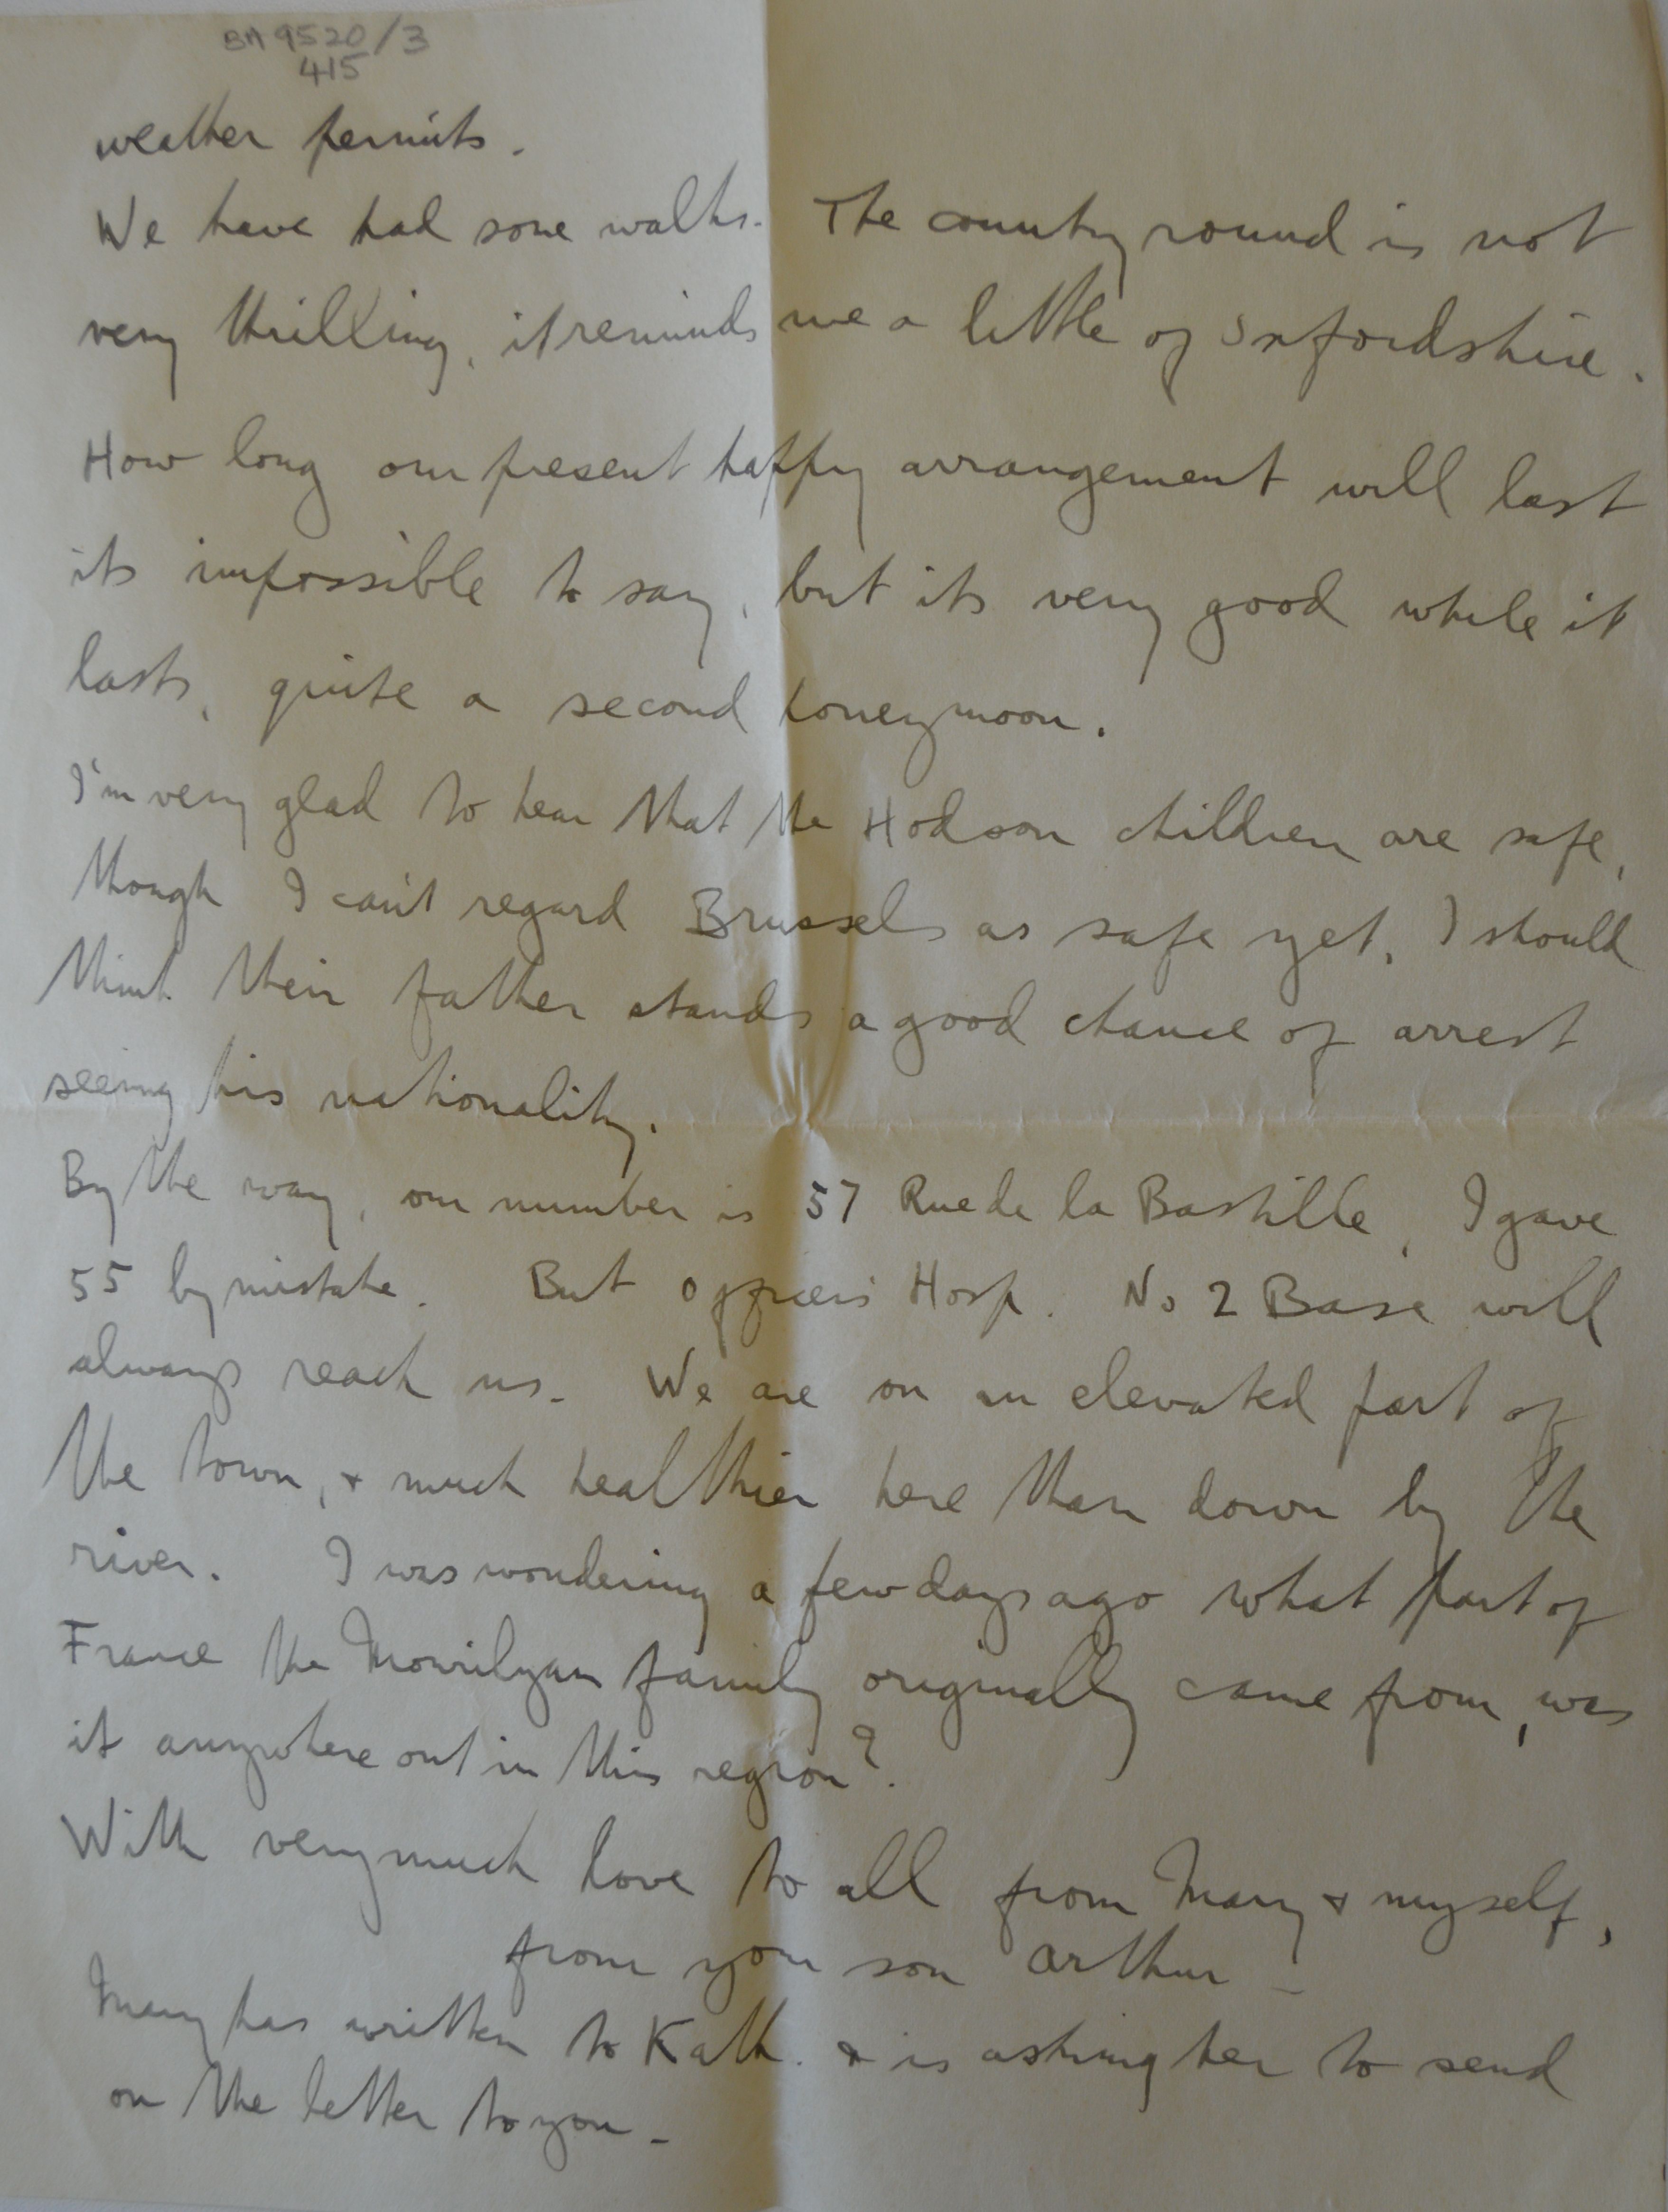 BA 9520/3
415
weather permits.
We have had some walks. The country round is not
very thrilling, it reminds me a little of Oxfordshire.
How long our present happy arrangement will last
its impossible to say, but its very good while it
lasts, quite a second honeymoon.
I'm very glad to hear that the Hodson children are safe,
though I can't regard Brussels as safe yet. I should
think their father stands a good chance of arrest
seeing his nationality.
By the way, our number is 57 Rue de la Bastille, I gave
55 by mistake. But Officers' Hosp. No 2 Base will
always reach us. We are on an elevated part of
the town, & much healthier here than down by the
river. I was wondering a few days ago what part of
France the Mourilyan family originally came from, was
it anywhere out in this region?
With very much love to all from Mary & myself,
from your son Arthur -
Mary has written to Kath. & is asking her to send
on the letter to you -